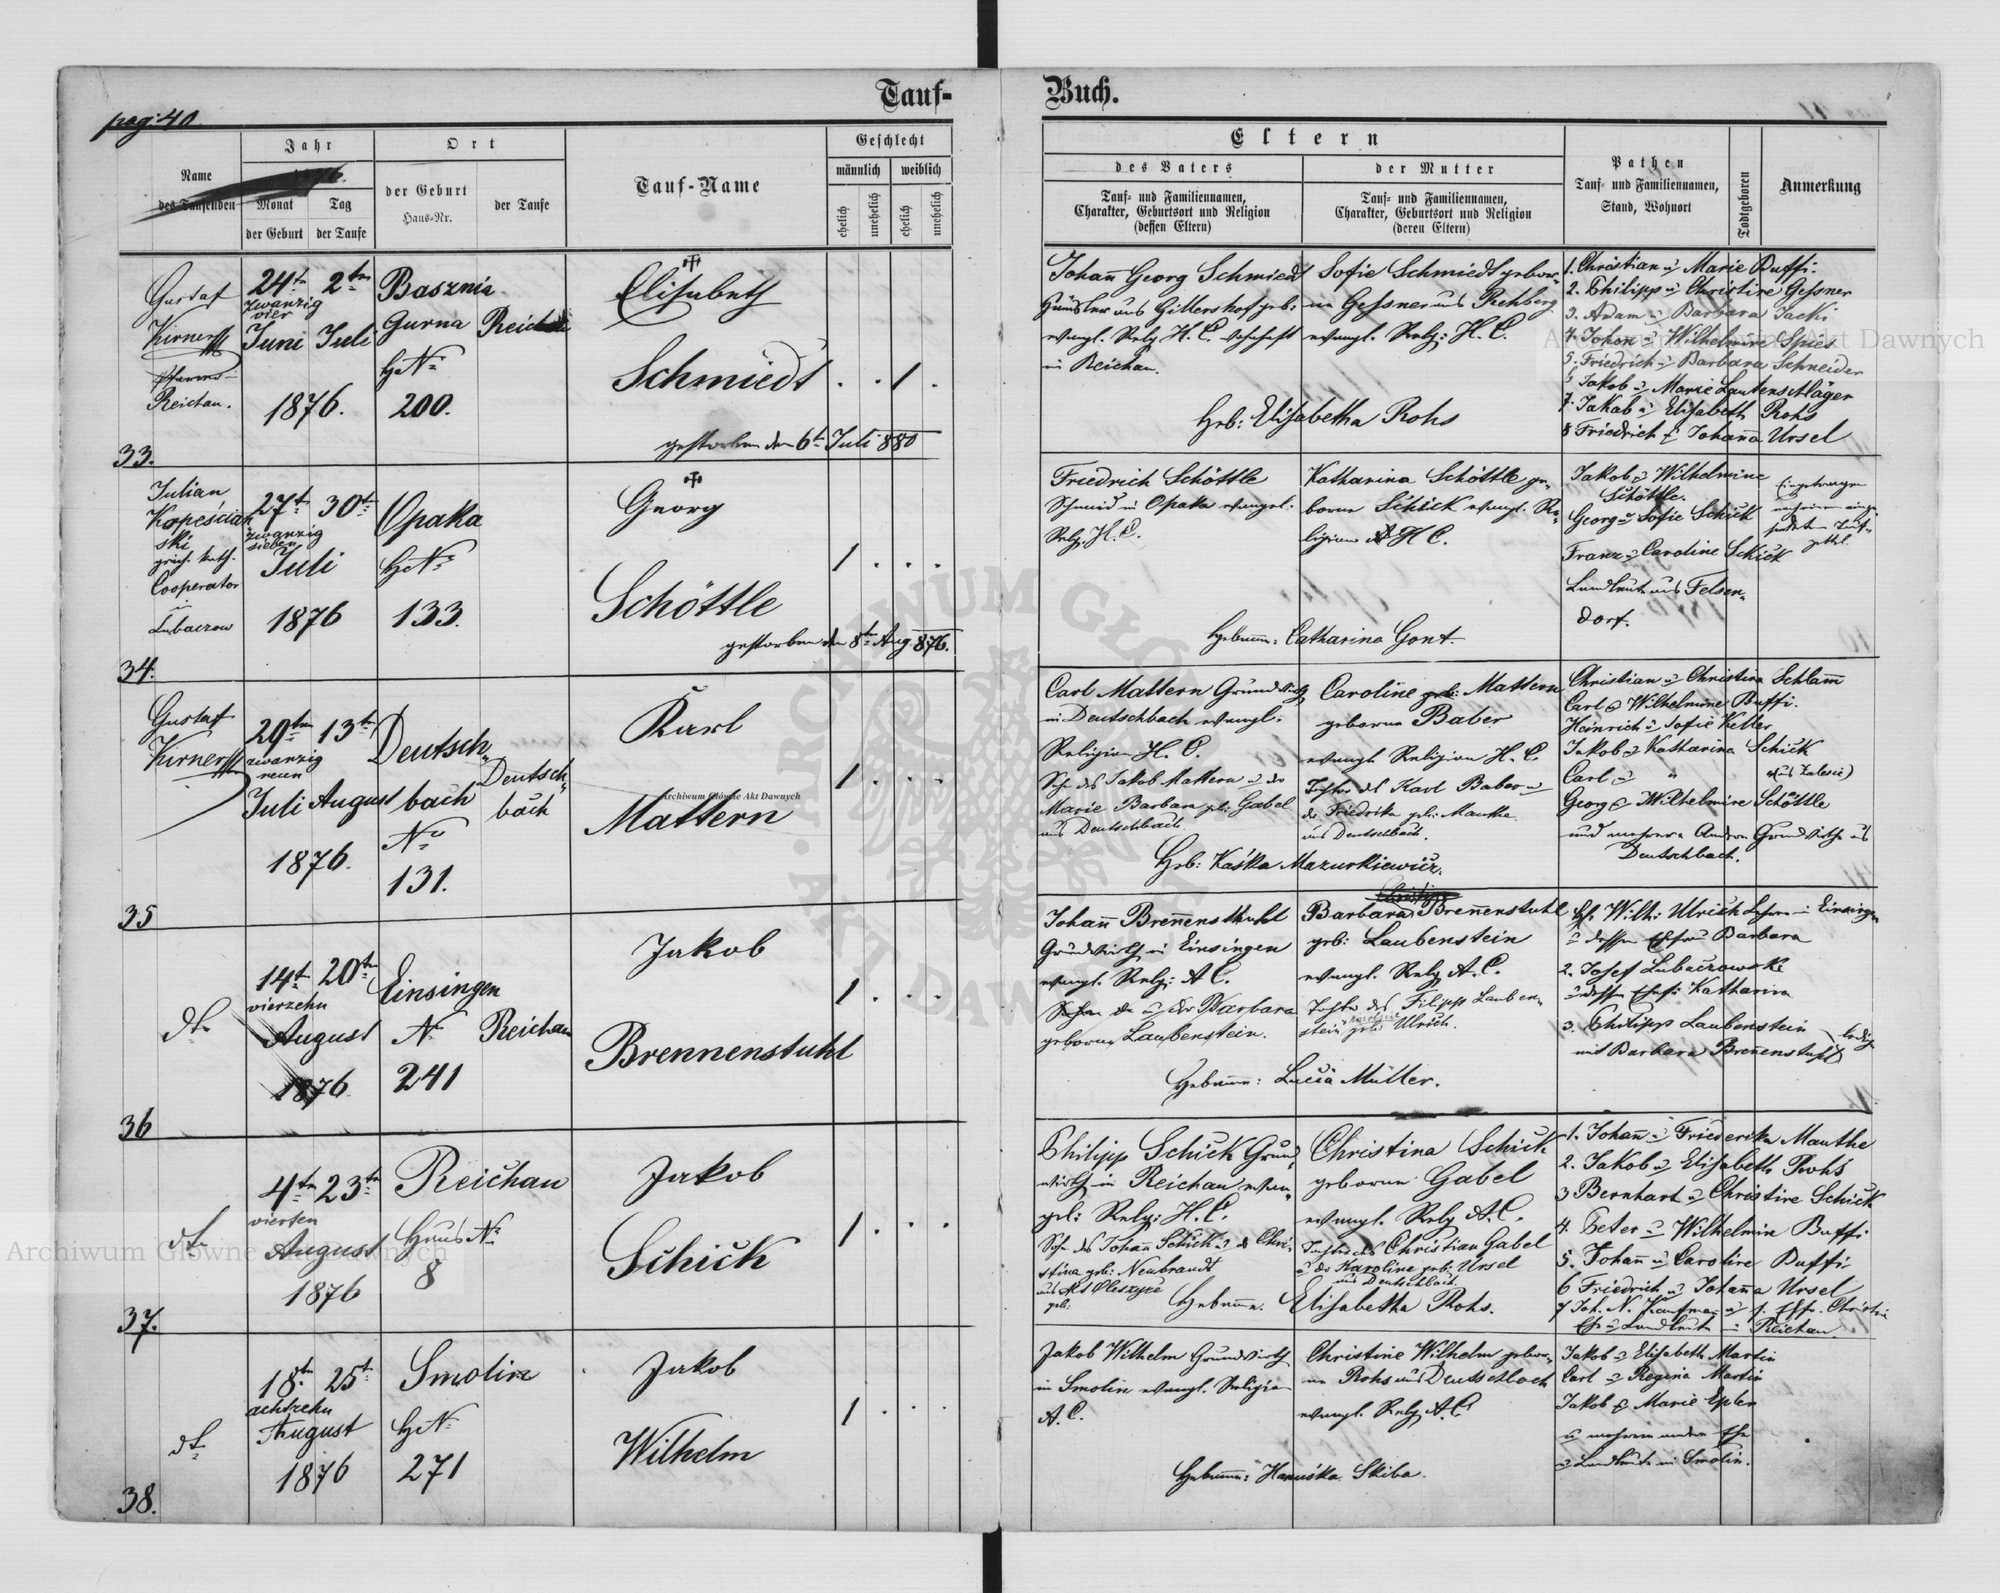 pag: 40
Tauf-
Buch.
Name
des Taufenden
Jahr
1876.
Monat
Tag
der Geburt
der Taufe
Ort
der Geburt
Haus-Nr.
der Taufe
Tauf-Name
Geschlecht
männlich
weiblich
ehelich
unehelich
ehelich
unehelich
Eltern
des Vaters
der Mutter
Tauf- und Familiennamen,
Charakter, Geburtsort und Religion
(dessen Eltern)
Tauf- und Familiennamen,
Charakter, Geburtsort und Religion
(deren Eltern)
Pathen
Tauf- und Familiennamen,
Stand, Wohnort
Todtgeboren
Anmerkung
33.
Gustaf
Kirner
Pfarrer
Reichau.
24t 2ten
zwanzig
vier
Juni Juli
1876.
Basznia
Gurna
HNo
200.
Reichau
Elisabeth
Schmiedt
1
gestorben den 6t Juli 880
Johañ Georg Schmiedt
aus Gillershof geb:
evangl. Relg. H. C. wohnhaft
in Reichau.
Sofie Schmiedt gebor
ne Gessner aus Rehberg
evangl. Relg: H. C.
Heb: Elisabetha Rohs
1. Christian u Marie Buffi.
2. Philipp u Christine Gessner
3. Adam u Barbara Jacki
4. Johan u Wilhelmine Spies
5. Friedrich u Barbara Schneider
6 Jakob u Marie Lautenschläger
7. Jakob u Elisabeth Rohs
8 Friedrich & Johaña Ursel
34.
Julian
Kopeściań
ski
griech. kath.
Cooperator
in
Lubaczow
27t 30t
zwanzig
sieben
Juli
1876
Opaka
HNo
133.
Georg
Schöttle
1
gestorben den 8ten Aug 876.
Friedrich Schöttle
Schmied in Opaka evangel:
Relg. H. C.
Katharina Schöttle ge-
borne Schick evangl. Re-
ligion H C.
Hebamme: Catharina Gont.
Jakob u Wilhelmine
Schöttle.
Georg u Sofie Schick
Franz u Caroline Schick
Landleute aus Felsen-
dorf.
Eingetragen
35
Gustaf
Kirner
29ten 13t
zwanzig
neun
Juli August
1876.
Deutsch
bach
No
131.
Deutsch
bach
Karl
Mattern
1
Carl Mattern Grundwirth
in Deutschbach evangl:
Religion H. C.
Sohn des Jakob Mattern u der
Marie Barbara geb: Gabel
aus Deutschbach.
Caroline geb: Mattern
geborne Baber
evangl. Religion H. C.
Tochter des Karl Baber u
der Friedrika geb: Manthe
aus Deutschbach.
Heb: Kaśka Mazurkiewicz.
Christian u Christina Schlamm
Carl u Wilhelmine Buffi.
Heinrich u Sofie Keller
Jakob u Katharina Schick
Carl u " (aus Zalesie)
Georg & Wilhelmine Schöttle
und mehrere Andere Grundwirthe aus
Deutschbach.
36
dto
14t 20ten
vierzehn
August
1876.
Einsingen
No
241
Reichau
Jakob
Brennenstuhl
1
Johañ Breñenstuhl
Grundwirth in Einsingen
evangl. Relg: A C.
u der Barbara
geborne Laubenstein.
Barbara Breñenstuhl
geb: Laubenstein
evangl. Relg A. C.
Tochter des Filipp Lauben-
stein geb: Ulrich.
Hebamme: Lucia Müller.
Wilh: Ulrich Lehrer in Einsingen
u dessen Ehefrau Barbara
2. Josef Lubaczowski
u dessen Ehefr: Katharina
3. Philipp Laubenstein
mit Barbara Breñenstuhl
ledig
37.
dto
4ten 23ten
vierten
August
1876
Reichau
Haus No
8
Jakob
Schick
1
Philipp Schick Grund
wirth in Reichau evan-
gel: Relg: H. C.
Sohn des Johañ Schick u der Chri-
stina geb: Neubrandt
aus Alt Oleszyce
geb:
Christina Schick
geborne Gabel
evangl. Relg A. C.
Tochter des Christian Gabel
u der Karoline geb: Ursel
aus Deutschbach.
Hebamme. Elisabetha Rohs.
1. Johañ u Friederika Manthe
2. Jakob u Elisabeth Rohs
3 Bernhart u Christine Schick
4. Peter u Wilhelmin Buffi
5. Johañ u Caroline Buffi
6 Friedrich u Johaña Ursel
7 Joh. N. Kaufman u s. Ehfr. Christin
Ehe u Landleute in Reichau
38.
dto
18ten 25t
achtzehn
August
1876
Smolin
HNo
271
Jakob
Wilhelm
1
Jakob Wilhelm Grundwirth
in Smolin evangl. Religion
A. C.
Christine Wilhelm gebor-
ne Rohs aus Deutschbach
evangl. Relg A. C.
Hebamme: Hanuśka Skiba.
Jakob u Elisabeth Martin
Carl u Regina Martin
Jakob & Marie Epler
u mehrere andere Ehe
u Landleute in Smolin.
Archiwum Główne Akt Dawnych